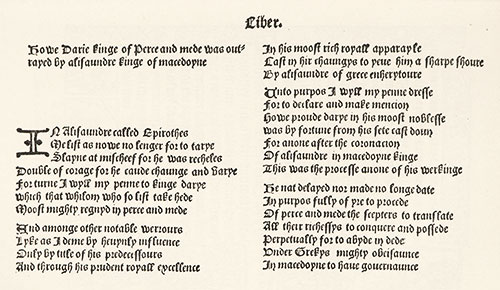 Liber.
Howe Darie kinge of Perce and mede was out-
rayed by alisaundre kinge of macedoyne
IN Alisaundre called Epirothes
Me list as nowe no lenger for to tarye
Slayne at mischeef for he was recheles
Double of corage for he caude chaunge and varye
For turne I wyll my penne to kinge darye
which that whilom who so list take hede
Moost mighty regnyd in perce and mede
And amonge other notable werrours
Lyke as I deme by hevynly influence
Only by title of his predecessours
And through his prudent royall excellence
In his moost rich royall apparayle
Cast in hir chaungys to yeue him a sharpe shoure
By alisaundre of grece enherytoure
Unto purpos I wyll my penne dresse
For to declare and make mencion
Howe proude darye in his moost noblesse
was by fortune from his sete cast doun
For anone after the coronacion
Of alisaundre in macedoyne kinge
This was the processe anone of his werkinge
He nat delayed nor made no longe date
In purpos fully of yre to procede
Of perce and mede the scepters to translate
All their richessys to conquere and possede
Perpetually for to abyde in dede
Under Grekys mighty obeisaunce
In macedoyne to haue gouernaunce